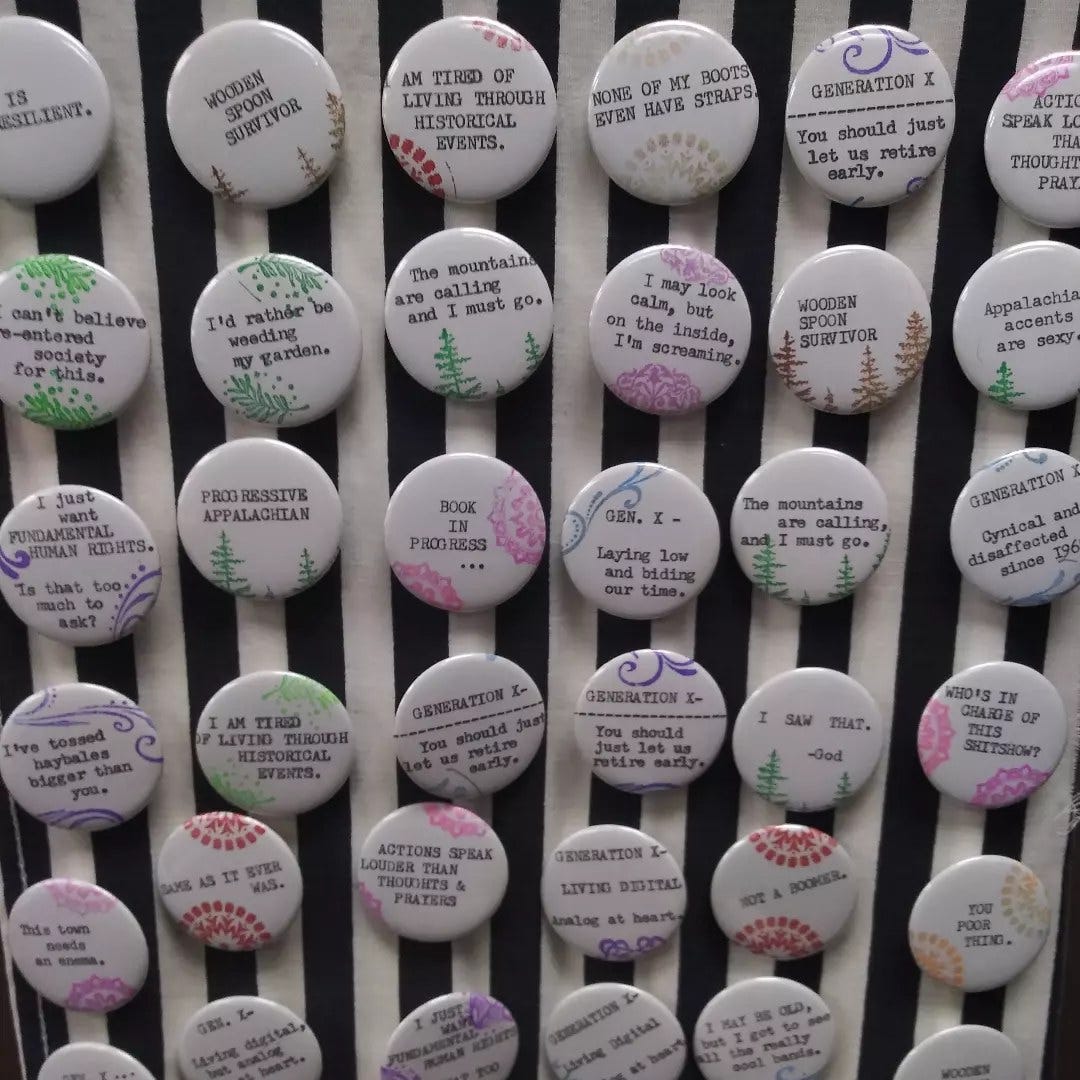 IS
RESILIENT.
WOODEN
SPOON
SURVIVOR
AM TIRED OF
LIVING THROUGH
HISTORICAL
EVENTS.
NONE OF MY BOOTS
EVEN HAVE STRAPS.
GENERATION X
You should just
let us retire
early.
ACTIO
SPEAK LO
THA
THOUGHT
PRAY
I can't believe
re-entered
society
for this.
I'd rather be
weeding
my garden.
The mountains
are calling
and I must go.
I may look
calm, but
on the inside,
I'm screaming.
WOODEN
SPOON
SURVIVOR
Appalachia
accents
are sexy.
I just
want
FUNDAMENTAL
HUMAN RIGHTS.
Is that too
much to
ask?
PROGRESSIVE
APPALACHIAN
BOOK
IN
PROGRESS
...
GEN. X -
Laying low
and biding
our time.
The mountains
are calling,
and I must go.
GENERATION X
Cynical and
disaffected
since 196
I've tossed
haybales
bigger than
you.
I AM TIRED
OF LIVING THROUGH
HISTORICAL
EVENTS.
GENERATION X-
You should just
let us retire
early.
GENERATION X-
You should
just let us
retire early.
I SAW THAT.
-God
WHO'S IN
CHARGE OF
THIS
SHITSHOW?
This town
needs
an enema.
SAME AS IT EVER
WAS.
ACTIONS SPEAK
LOUDER THAN
THOUGHTS &
PRAYERS
GENERATION X-
LIVING DIGITAL
Analog at heart.
NOT A BOOMER.
YOU
POOR
THING.
GEN. X ...
GEN. X-
Living digital,
but analog
at heart.
I JUST
WANT
FUNDAMENTAL
HUMAN RIGHTS
TOO
GENERATION X-
Living Digital
at heart
I MAY BE OLD,
but I got to see
all the really
cool bands.
WOODEN